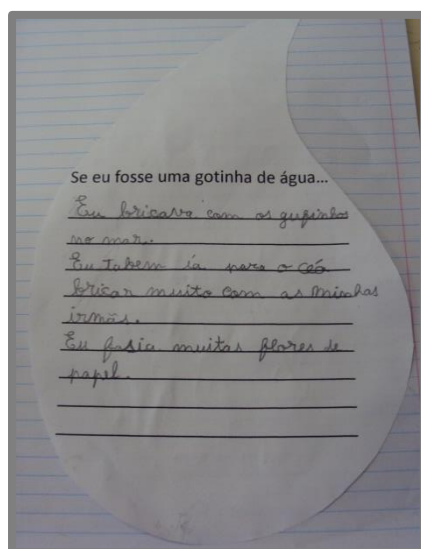 Se eu fosse uma gotinha de água...
Eu bricava com os gupinhos
no mar.
Eu tabem ía para o céo
bricar muito com as minhas
irmãs.
Eu fasia muitas flores de
papel.